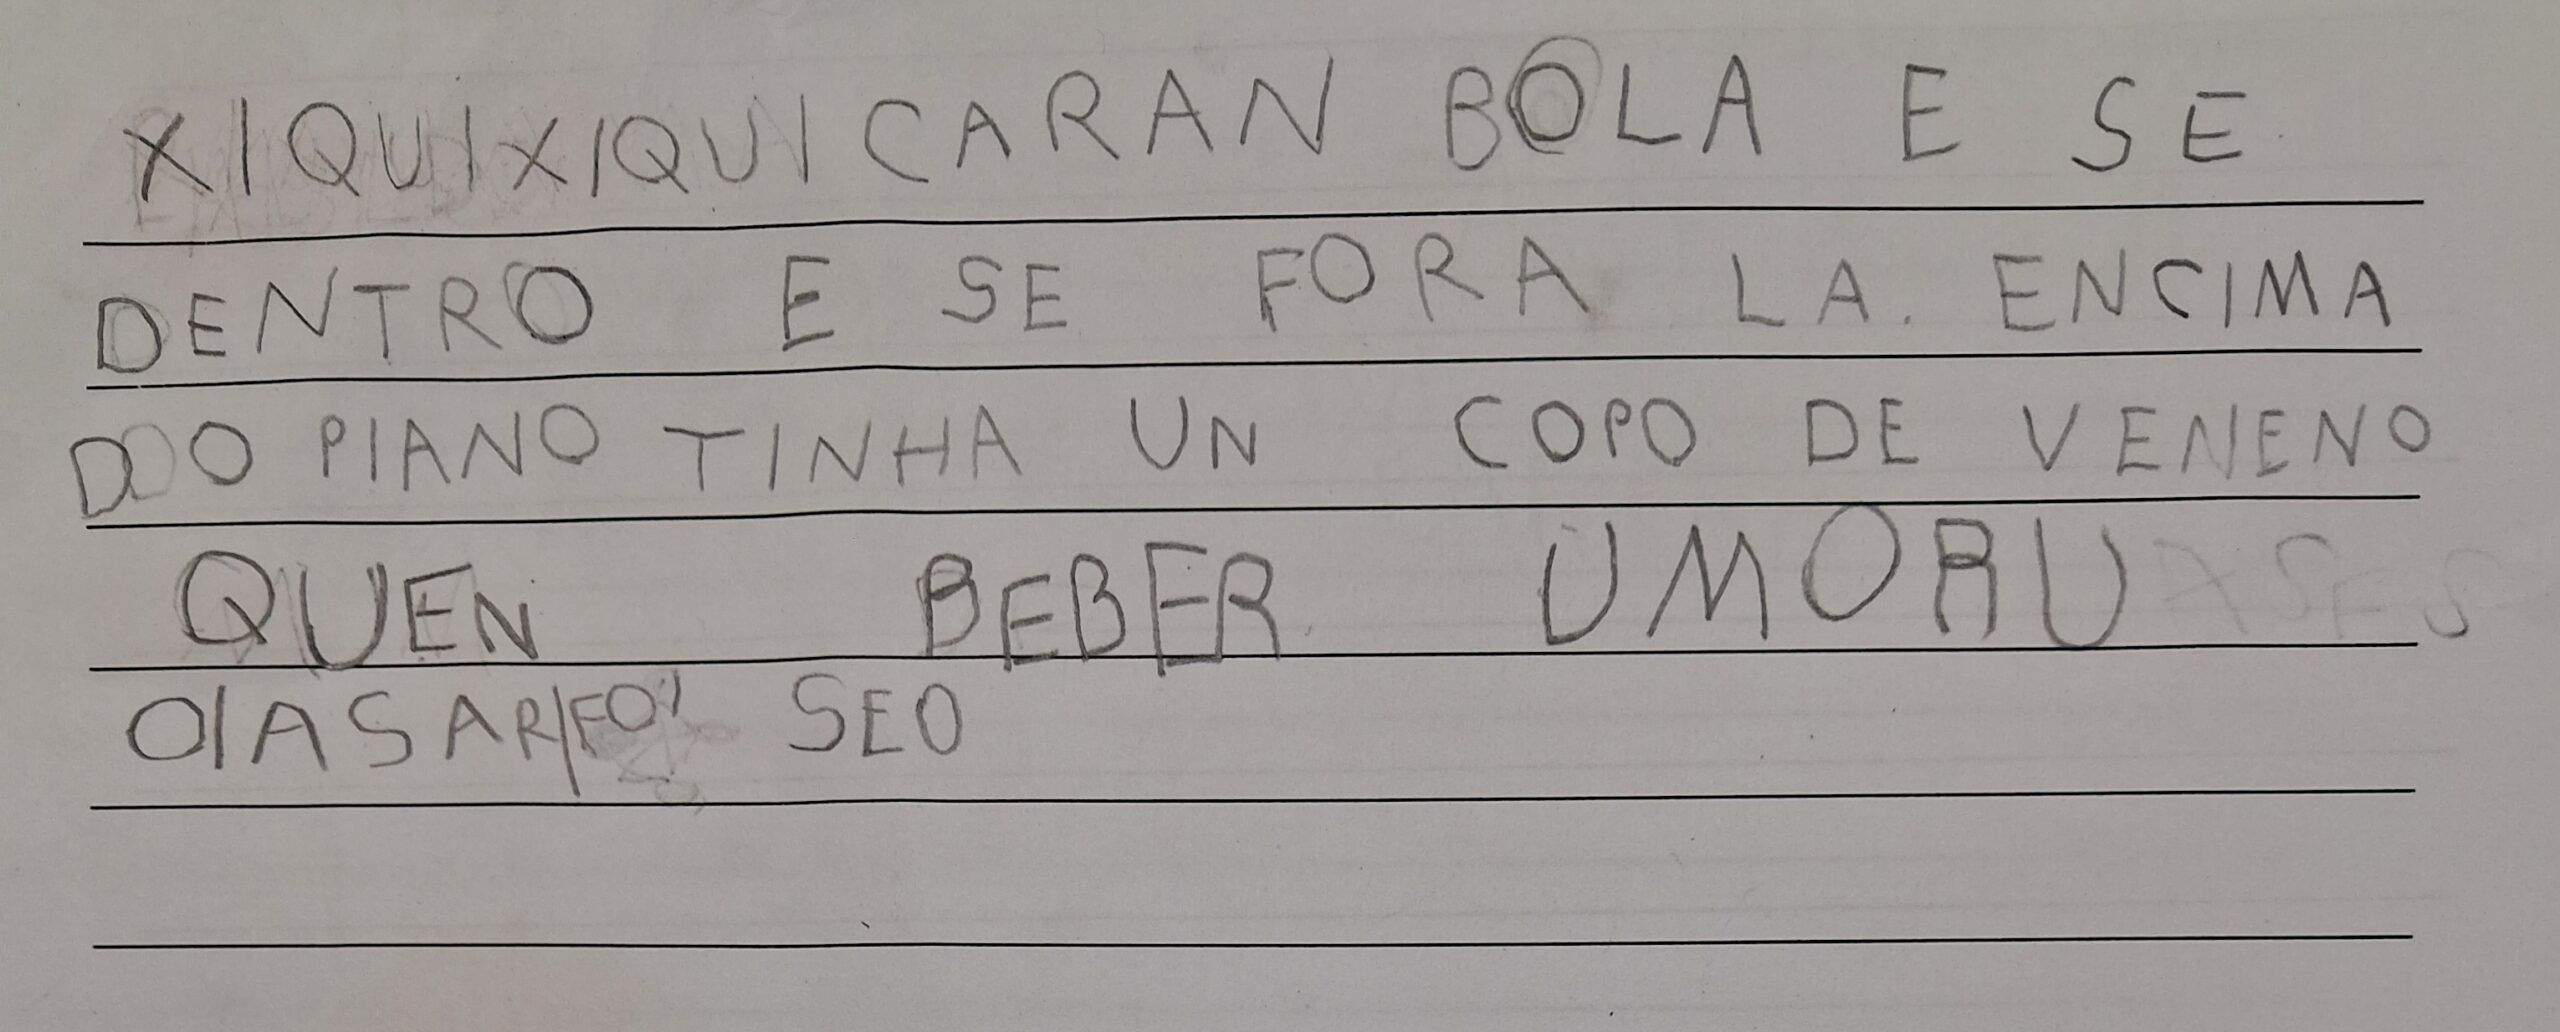 XIQUIXIQUI CARAN BOLA E SE
DENTRO E SE FORA LA. ENCIMA
DO PIANO TINHA UN COPO DE VENENO
QUEN BEBER UMORU
O IASAR FOI SEO